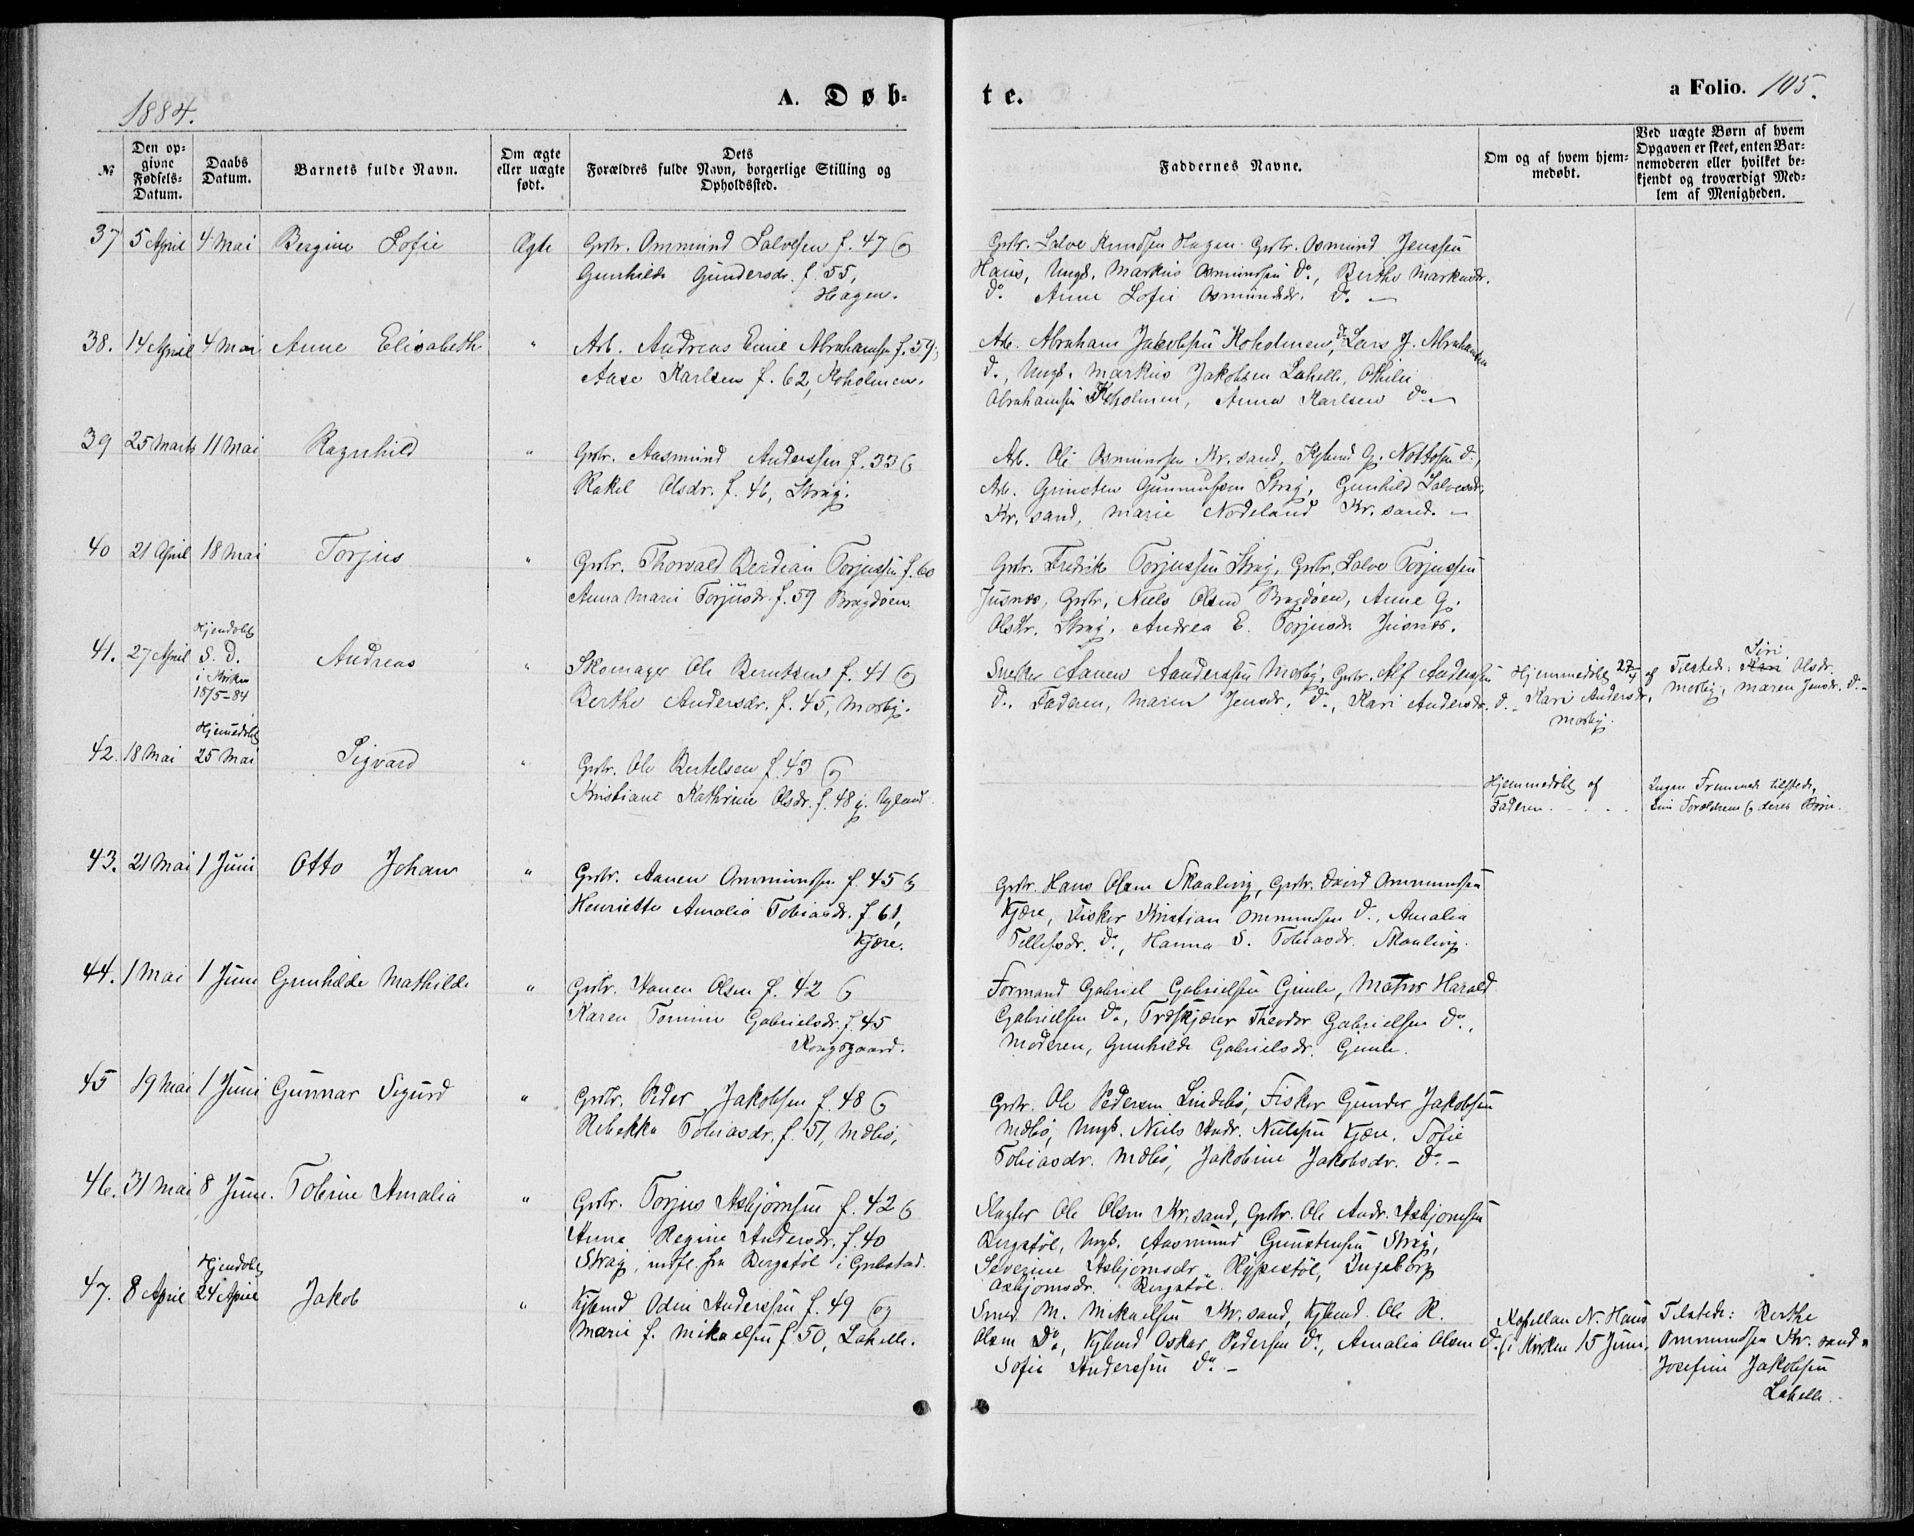 1884.
A. Døb-
te.
a Folio. 105.
№
Den op-
givne
Fødsels-
Datum.
Daabs
Datum.
Barnets fulde Navn.
Om ægte
eller uægte
født.
Dets
Forældres fulde Navn, borgerlige Stilling og
Opholdssted.
Faddernes Navne.
Om og af hvem hjem-
medøbt.
Ved uægte Børn af hvem
Opgaven er skeet, enten Bar-
nemoderen eller hvilket be-
kjendt og troværdigt Med-
lem af Menigheden.
37 5 April 4 Mai Bergine Sofie Ægte
Grbr. Ommund Salvesen f. 47 og
Gunhilde Gundersdr. f. 55,
Hagen.
Grbr. Salve Knudsen Hagen. Grbr. Osmund Jenssen
Haus, Ungk. Markus Osmundsen do., Berthe Markusdr.
do. Anne Sofie Osmundsdr. do. –
38. 14 April 4 Mai Anne Elisabeth "
Arb. Andreas Emil Abrahamsen f. 59,
Aase Karlsen f. 62, Koholmen.
Arb. Abraham Jakobsen Koholmen, do Lars J. Abrahamsen
do., Ungk. Markus Jakobsen Lahelle, Othilie
Abrahamsen Koholmen, Anna Karlsen do –
39 25 Marts 11 Mai Ragnhild "
Grbr. Aasmund Anderssen f. 33 og
Rakel Olsdr. f. 46, Strag.
Arb. Ole Osmundsen Kr.sand, Kjbmd G. Nottosen do,
Arb. Grunsten Gunnufsen Strag, Gunhild Salvesdr.
Kr.sand, Marie Nodeland Kr.sand. –
40 21 April 18 Mai Torjus "
Grbr. Thorvald Berdean Torjussen f. 60
Anna Marie Torjusdr. f. 59 Bragdøen.
Grbr. Fredrik Torjussen Strag, Grbr. Salve Torjussen
Justnes, Grbr. Niels Olsen Bragdøen, Anne G.
Olsdtr. Strag. Andrea E. Torjusdr. Justnes.
41. 27 April
Hjemdøbt
S. D.
i Kirken
18/5-84
Andreas "
Skomager Ole Berntsen f. 41 og
Berthe Andersdr. f. 45, Mosby.
Snekker Aanen Aanderssen Mosby, Grbr. Alf Anderssen
do. Faderen, Maren Jensdr. do., Kari Andersdr. do. –
Hjemmedøbt 27/4 af
Kari Andersdr.
Mosby.
Siri
Tilstede: Kari Olsdr.
Mosby, Maren Jensdr. do. –
42. 18 Mai
Hjemedøbt
25 Mai
Sigvard "
Grbr. Ole Bertelsen f. 43 og
Kristiane Kathrine Olsdr. f. 48 g. Ugland
Hjemmedøbt af
Faderen. . . .
Ingen Fremmede tilstede,
kun Forældrene og deres Børn.
43. 21 Mai 1 Juni Otto Johan "
Grbr. Aanen Ommundsen f. 45 og
Henriette Amalia Tobiasdr. f. 61,
Kjære.
Grbr. Hans Olsen Skaalevig, Grbr. David Ommundsen
Kjære, Fisker Kristian Ommundsen do., Amalia
Tellefsdr. do., Hanna S. Tobiasdr. Skaalevig.
44. 1 Mai 1 Juni Gunhilde Mathilde "
Grbr. Aanen Olsen f. 42 og
Karen Tomine Gabrielsdr. f. 45
Kongsgaard.
Formand Gabriel Gabrielsen Gimle, Matros Harald
Gabrielsen do., Træskjærer Theodor Gabrielsen do.,
Moderen, Gunhilde Gabrielsdr. Gimle.
45 19 Mai 1 Juni Gunnar Sigurd "
Grbr. Peder Jakobsen f. 48 og
Rebekka Tobiasdr. f. 51, Mæbø,
Grbr. Ole Pedersen Lindebø, Fisker Gunder Jakobsen
Mæbø, Ungk. Niels Andr. Nielsen Kjære, Sofie
Tobiasdr. Mæbø, Jakobine Jakobsdr. do. –
46. 31 Mai 8 Juni. Tobine Amalia "
Grbr. Torjus Asbjørnsen f. 42 og
Anna Regine Andersdr. f. 40
Strag, indfl. fra Bergstøl i Grebstad.
Slagter Ole Olsen Kr.sand, Grbr. Ole Andr. Asbjørnsen
Bergstøl, Ungk. Aasmund Gunstensen Strag,
Severine Asbjørnsdr. Rypestøl, Ingeborg
Asbjørnsdr. Bergstøl.
47. 8 April
Hjemdøbt
24 April
Jakob "
Kjbmd Odin Anderssen f. 49 og
Marie f. Mikaelsen f. 50, Lahelle.
Smed M. Mikaelsen Kr.sand, Kjbmd Ole R.
Olsen Do, Kjbmd Oskar Pedersen do., Amalia Olsen do.
Sofie Anderssen do. –
Kapellan N. Hans
(i Kirken 15 Juni,
Tilstede: Berthe
Ommundsen Kr.sand.
Josefine Jakobsen
Lahelle.